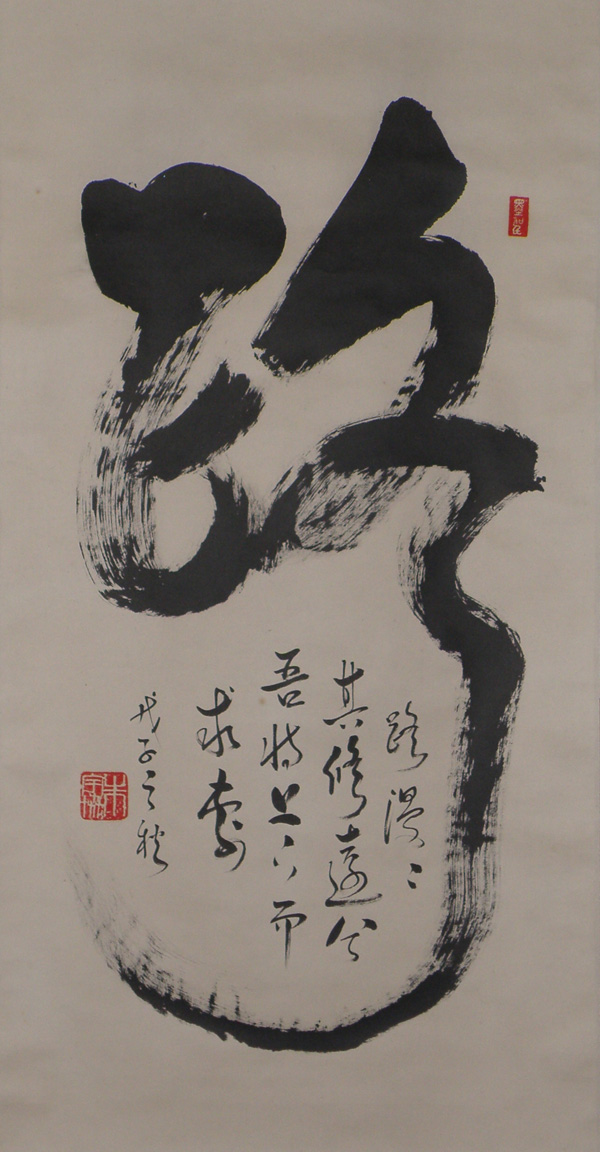 路
路漫〻
其修遠兮
吾将上下而
求索
戊子之秋